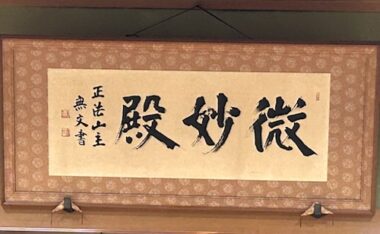 微妙殿
正法山主
無文書